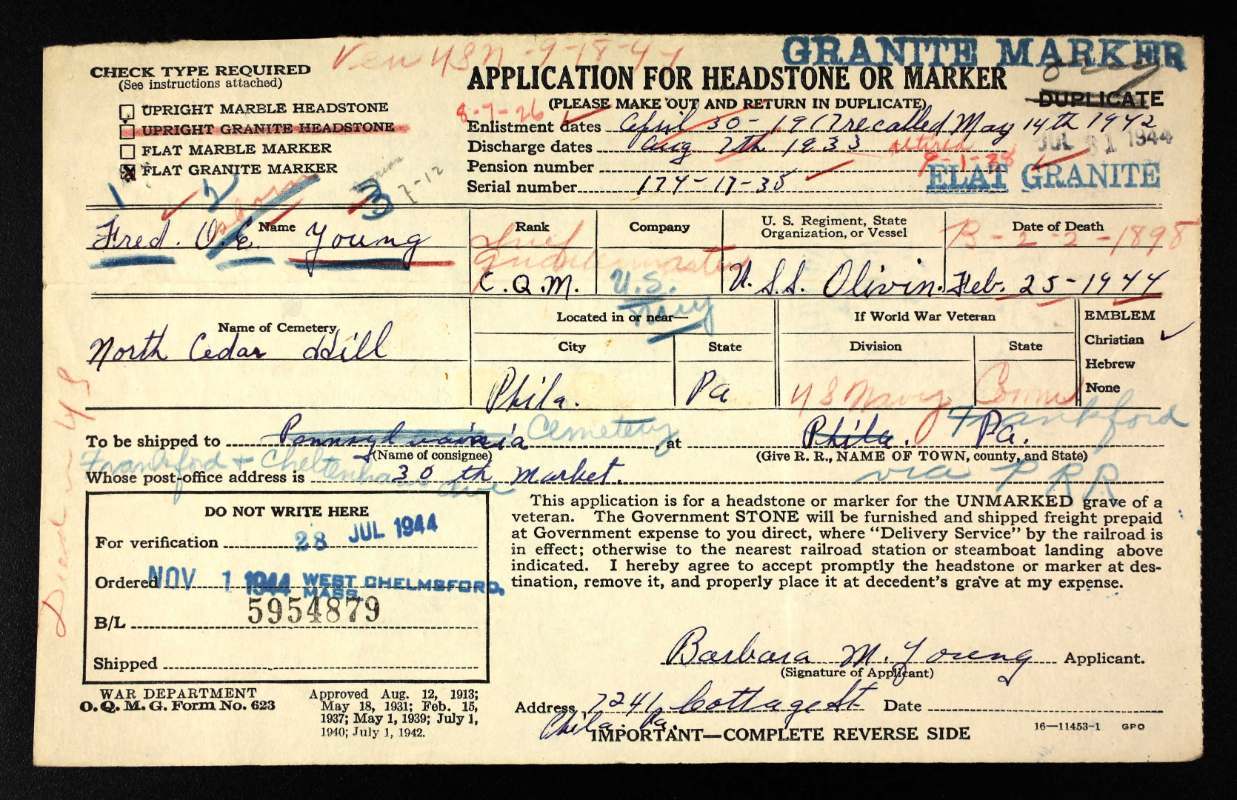 Ver USN - 9-18-47
GRANITE MARKER
CHECK TYPE REQUIRED
(See instructions attached)
APPLICATION FOR HEADSTONE OR MARKER
(PLEASE MAKE OUT AND RETURN IN DUPLICATE)
DUPLICATE
UPRIGHT MARBLE HEADSTONE
UPRIGHT GRANITE HEADSTONE
FLAT MARBLE MARKER
FLAT GRANITE MARKER
8-7-26
Enlistment dates April 30-1917 recalled May 14th 1942
Discharge dates Aug 7th 1933 retired
JUL 31 1944
Pension number
9-1-38
FLAT GRANITE
Serial number 174-17-35
1 2 3 7-12
Fred. O. E. Young
Name
Rank
Company
U. S. Regiment, State
Organization, or Vessel
Date of Death
B-2-2-1898
Chief
Quartermaster
C.Q.M.
U.S.
Navy
U.S.S. Olivin.
Feb. 25-1944
Name of Cemetery
North Cedar Hill
Located in or near—
City
State
Phila.
Pa
If World War Veteran
Division
State
US Navy
EMBLEM
Christian ✓
Hebrew
None
To be shipped to Pennsylvainia Cemetery at Phila. Pa. Frankford
(Name of consignee)
(Give R. R., NAME OF TOWN, county, and State)
Frankford & Cheltenham Ave
via PRR
Whose post-office address is 30 th market.
DO NOT WRITE HERE
For verification 28 JUL 1944
Ordered NOV 1 1944 WEST CHELMSFORD,
MASS.
B/L 5954879
Shipped
This application is for a headstone or marker for the UNMARKED grave of a
veteran. The Government STONE will be furnished and shipped freight prepaid
at Government expense to you direct, where “Delivery Service” by the railroad is
in effect; otherwise to the nearest railroad station or steamboat landing above
indicated. I hereby agree to accept promptly the headstone or marker at des-
tination, remove it, and properly place it at decedent's grave at my expense.
Barbara M. Young Applicant.
(Signature of Applicant)
WAR DEPARTMENT
O. Q. M. G. Form No. 623
Approved Aug. 12, 1913;
May 18, 1931; Feb. 15,
1937; May 1, 1939; July 1,
1940; July 1, 1942.
Address 7241 Cottage St Date
Phila. Pa.
IMPORTANT—COMPLETE REVERSE SIDE
16—11453-1 GPO